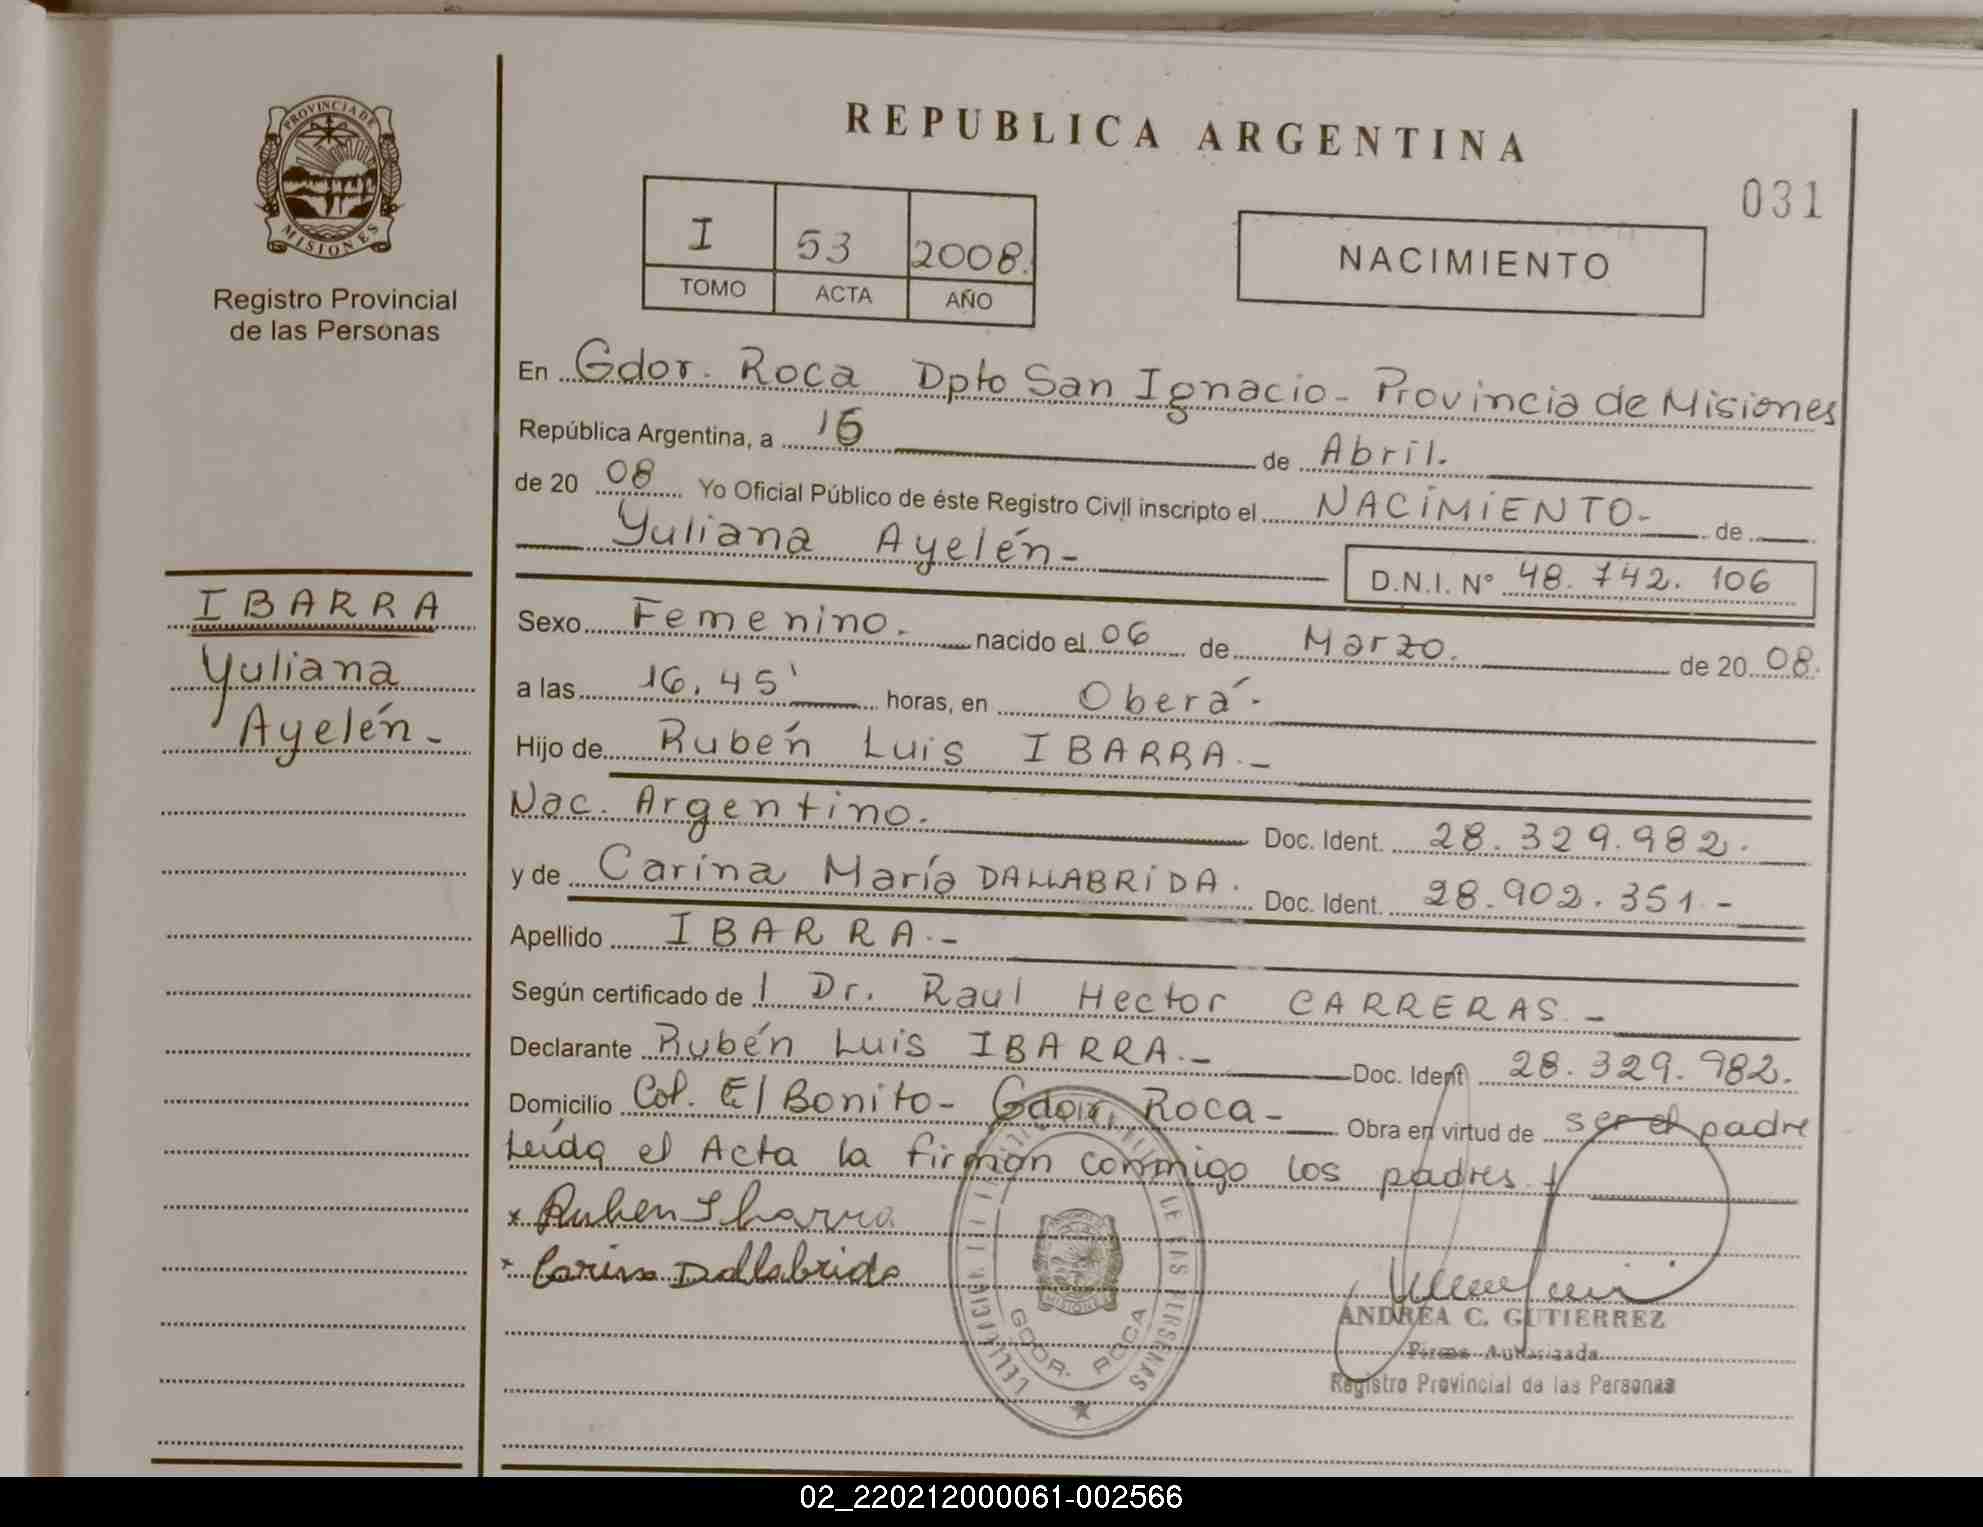 PROVINCIA DE
MISIONES
Registro Provincial
de las Personas
IBARRA
Yuliana
Ayelén-
REPUBLICA ARGENTINA
031
I 53 2008.
TOMO ACTA AÑO
NACIMIENTO
En Gdor. Roca Dpto San Ignacio- Provincia de Misiones
República Argentina, a 16 de Abril.
de 20 08 Yo Oficial Público de éste Registro Civil inscripto el NACIMIENTO- de
Yuliana Ayelén-
D.N.I. N° 48.742.106
Sexo Femenino. nacido el 06 de Marzo. de 20 08.
a las 16,45' horas, en Oberá-
Hijo de Rubén Luis IBARRA.-
Nac. Argentino. Doc. Ident. 28.329.982.
y de Carina María DALLABRIDA. Doc. Ident. 28.902.351.-
Apellido IBARRA.-
Según certificado de l Dr. Raul Hector CARRERAS.-
Declarante Rubén Luis IBARRA.- Doc. Ident 28.329.982.
Domicilio Col. El Bonito- Gdor. Roca- Obra en virtud de ser el padre
Leída el Acta la firman conmigo los padres.
x Ruben Ibarra
x Carina Dallabrida
DE LAS PERSONAS
MISIONES
GDOR. ROCA
ANDREA C. GUTIERREZ
Firma Autorizada
Registro Provincial de las Personas
02_220212000061-002566